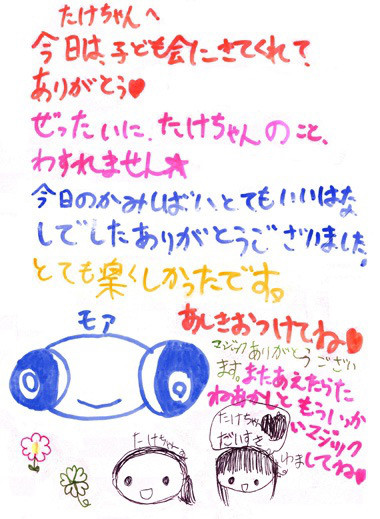 たけちゃんへ
今日は、子ども会にきてくれて、
ありがとう♥
ぜったいに、たけちゃんのこと、
わすれません★
今日のかみしばい、とてもいいはな
しでしたありがとうございました。
とても楽くしかったです。
あしきおつけてね♥
モア
マジックありがとうござい
ます。
またあえたらた
ねあかしと もういっか
いマジック
してね♥
たけちゃん
だいすき
たけちゃん